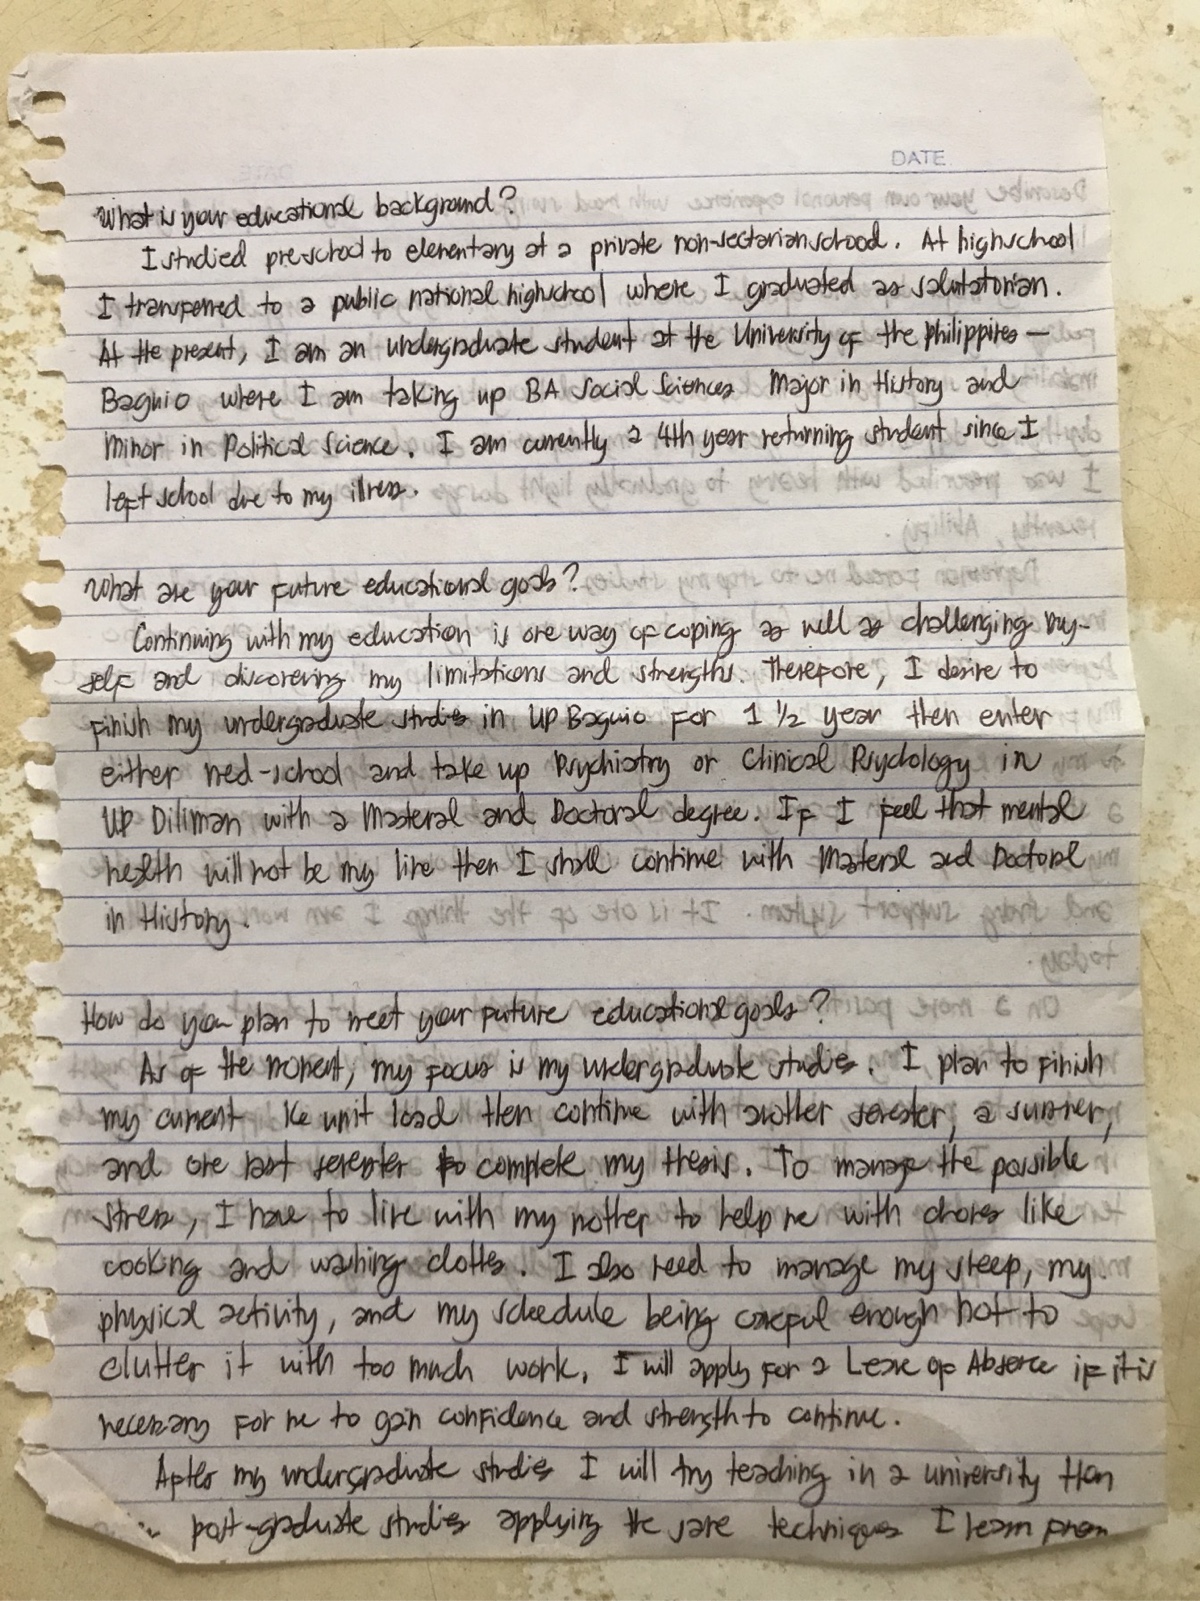 DATE
What is your educational background?
I studied preschool to elementary at a private non-sectarian school. At highschool
I transferred to a public national highschool where I graduated as salutatorian.
At the present, I am an undergraduate student at the University of the Philippines —
Baguio where I am taking up BA Social Sciences Major in History and
Minor in Political Science. I am currently a 4th year returning student since I
left school due to my illness.
What are your future educational goals?
Continuing with my education is one way of coping as well as challenging my-
self and discovering my limitations and strengths. Therefore, I desire to
finish my undergraduate studies in UP Baguio for 1 ½ year then enter
either med-school and take up Psychiatry or Clinical Psychology in
UP Diliman with a Masteral and Doctoral degree. If I feel that mental
health will not be my line then I shall continue with Masteral and Doctoral
in History.
How do you plan to meet your future educational goals?
As of the moment, my focus is my undergraduate studies. I plan to finish
my current unit load then continue with another semester, a summer,
and one last semester to complete my thesis. To manage the possible
stress, I have to live with my mother to help me with chores like
cooking and washing clothes. I also need to manage my sleep, my
physical activity, and my schedule being careful enough not to
clutter it with too much work. I will apply for a Leave of Absence if it is
necessary for me to gain confidence and strength to continue.
After my undergraduate studies I will try teaching in a university then
post-graduate studies applying the same techniques I learn from